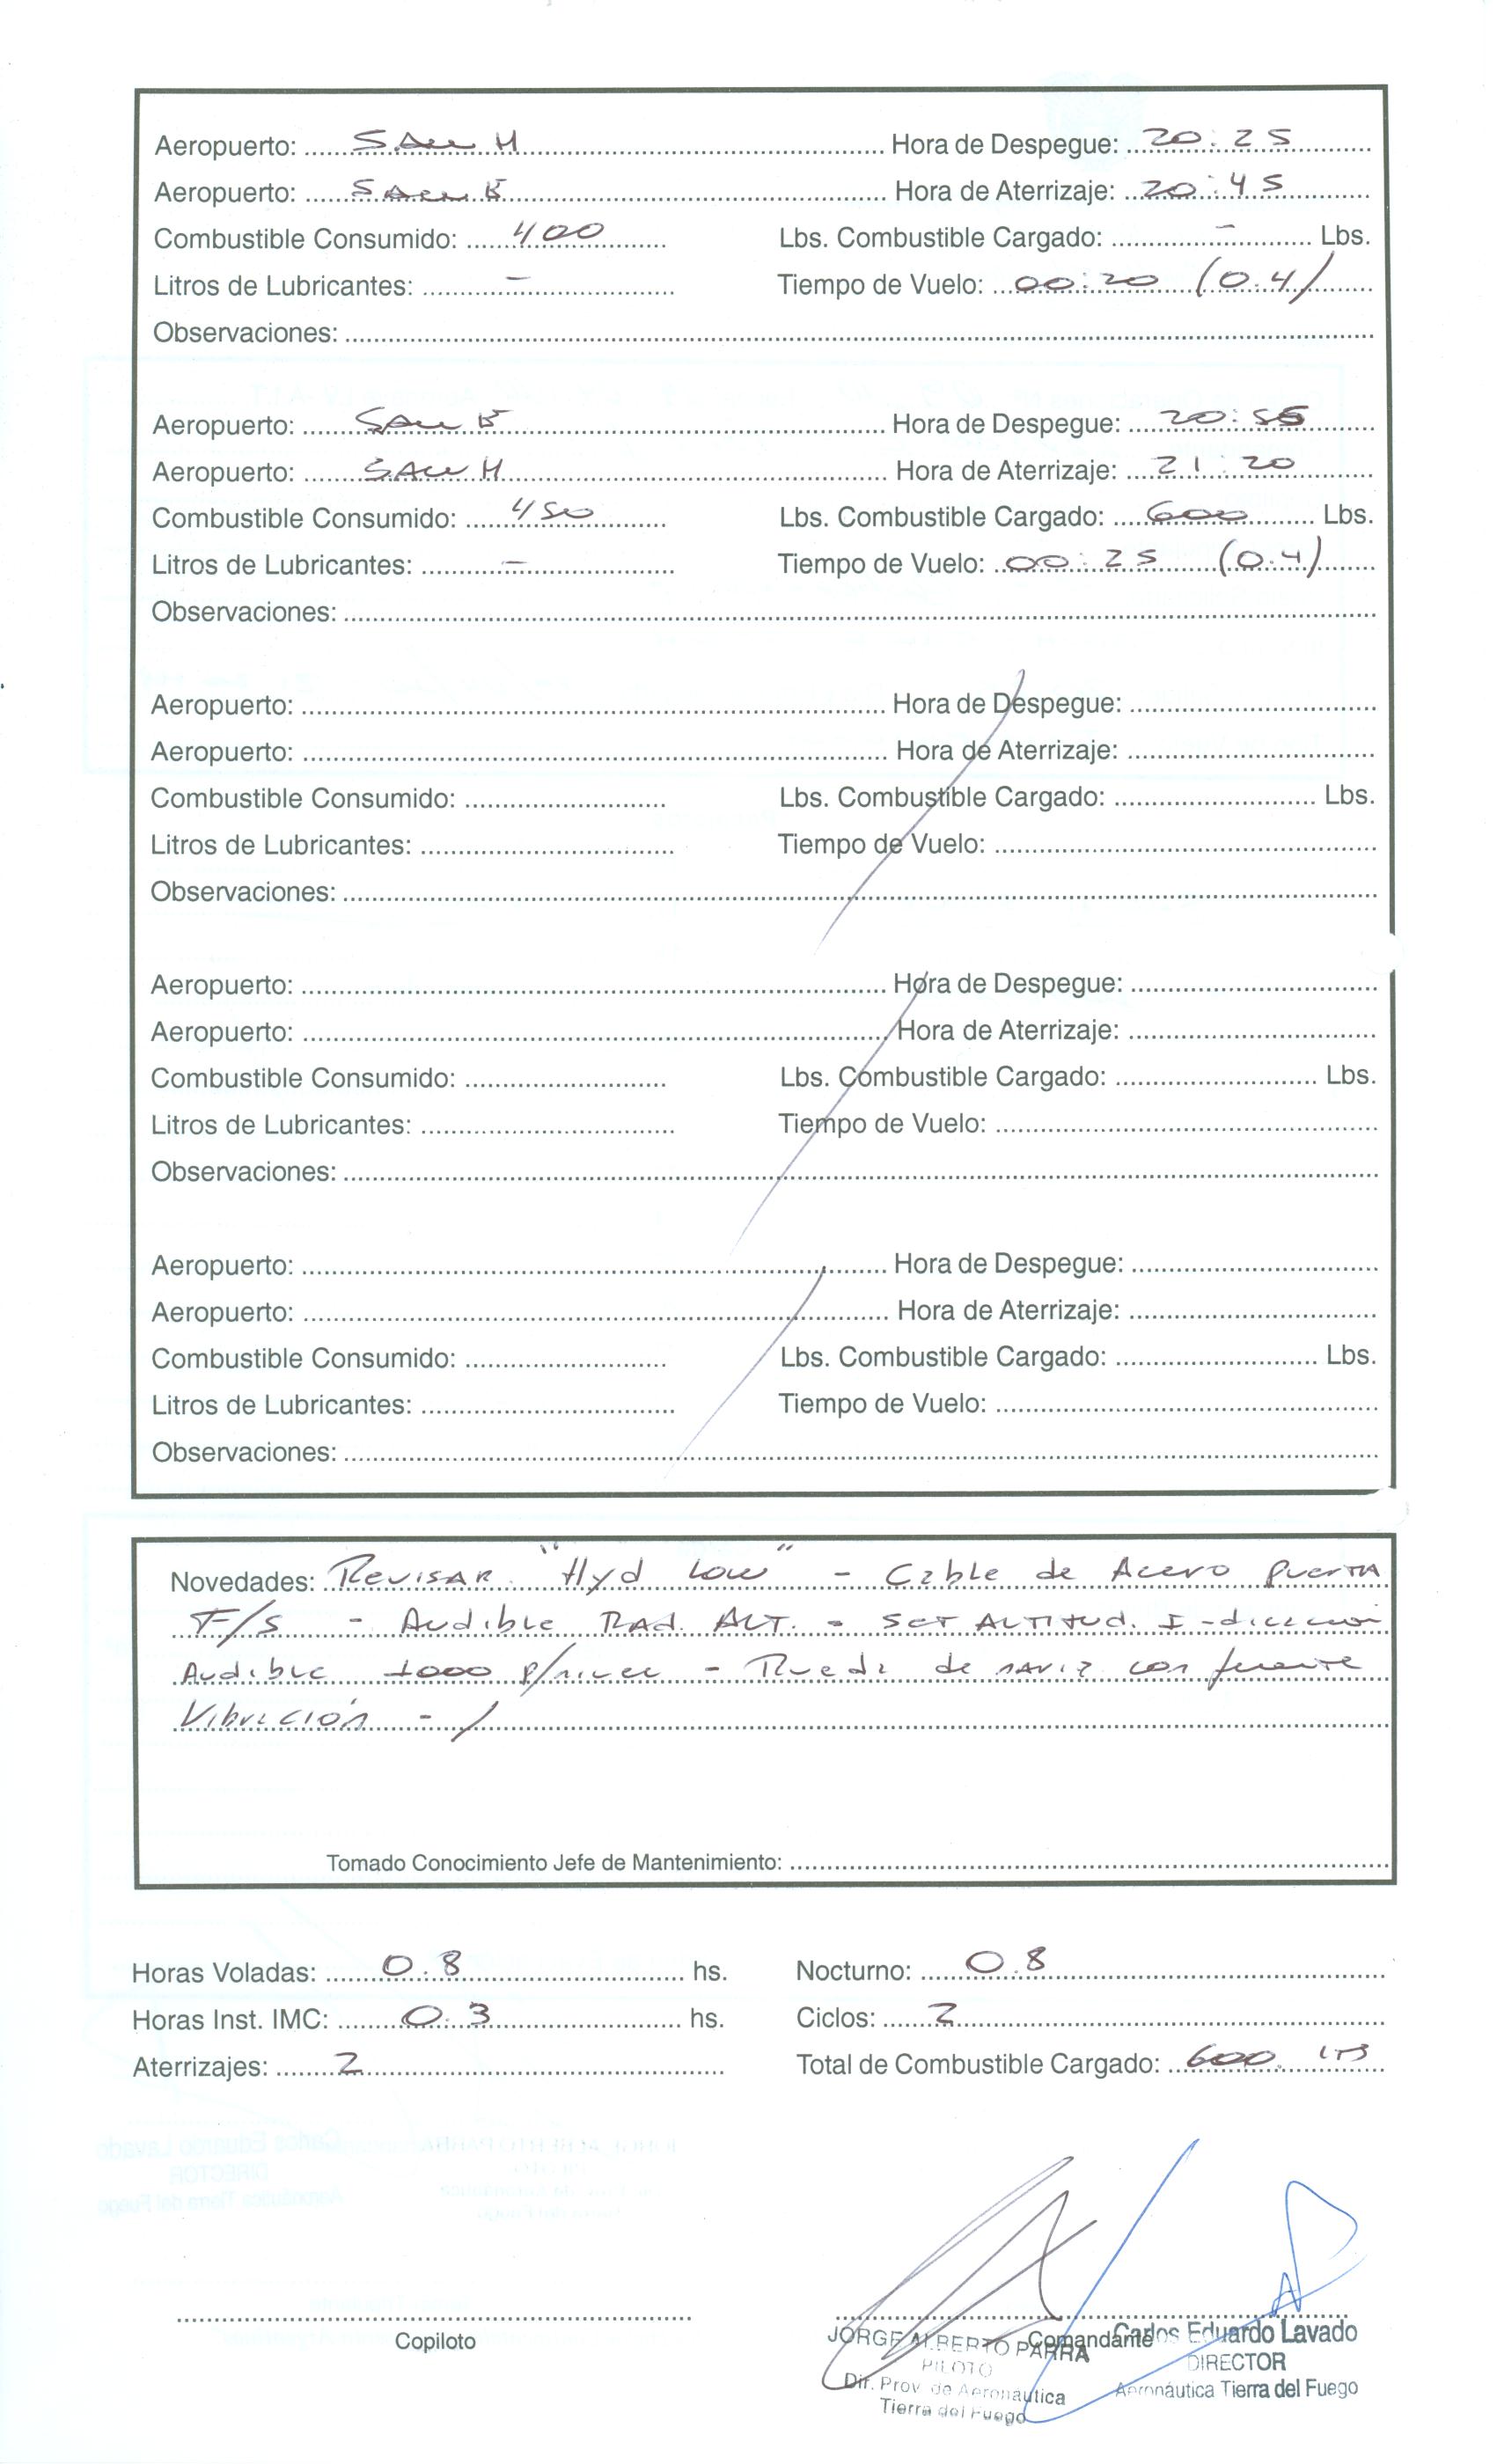 Aeropuerto: SAWH Hora de Despegue: 20:25
Aeropuerto: SAWE Hora de Aterrizaje: 20:45
Combustible Consumido: 400 Lbs. Combustible Cargado: - Lbs.
Litros de Lubricantes: - Tiempo de Vuelo: 00:20 (0.4)
Observaciones:
Aeropuerto: SAWE Hora de Despegue: 20:55
Aeropuerto: SAWH Hora de Aterrizaje: 21:20
Combustible Consumido: 450 Lbs. Combustible Cargado: 600 Lbs.
Litros de Lubricantes: - Tiempo de Vuelo: 00:25 (0.4)
Observaciones:
Aeropuerto: Hora de Despegue:
Aeropuerto: Hora de Aterrizaje:
Combustible Consumido: Lbs. Combustible Cargado: Lbs.
Litros de Lubricantes: Tiempo de Vuelo:
Observaciones:
Aeropuerto: Hora de Despegue:
Aeropuerto: Hora de Aterrizaje:
Combustible Consumido: Lbs. Combustible Cargado: Lbs.
Litros de Lubricantes: Tiempo de Vuelo:
Observaciones:
Aeropuerto: Hora de Despegue:
Aeropuerto: Hora de Aterrizaje:
Combustible Consumido: Lbs. Combustible Cargado: Lbs.
Litros de Lubricantes: Tiempo de Vuelo:
Observaciones:
Novedades: Revisar "Hyd Low" - Cable de Acero puerta
F/S - Audible Rad. ALT. - SET ALTITUD. Indicación
Audible 1000 - Rueda de nariz con fuerte
Vibración - /
Tomado Conocimiento Jefe de Mantenimiento:
Horas Voladas: 0.8 hs. Nocturno: 0.8
Horas Inst. IMC: 0.3 hs. Ciclos: 2
Aterrizajes: 2 Total de Combustible Cargado: 600 LTS
Copiloto
Comandante
JORGE ALBERTO PARRA
PILOTO
Dir. Prov. de Aeronáutica
Tierra del Fuego
Carlos Eduardo Lavado
DIRECTOR
Aeronáutica Tierra del Fuego